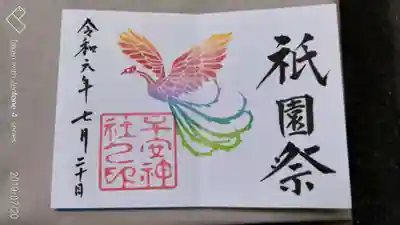 祇園祭
子安神
社之印
令和元年 七月 二十日
2019/07/20